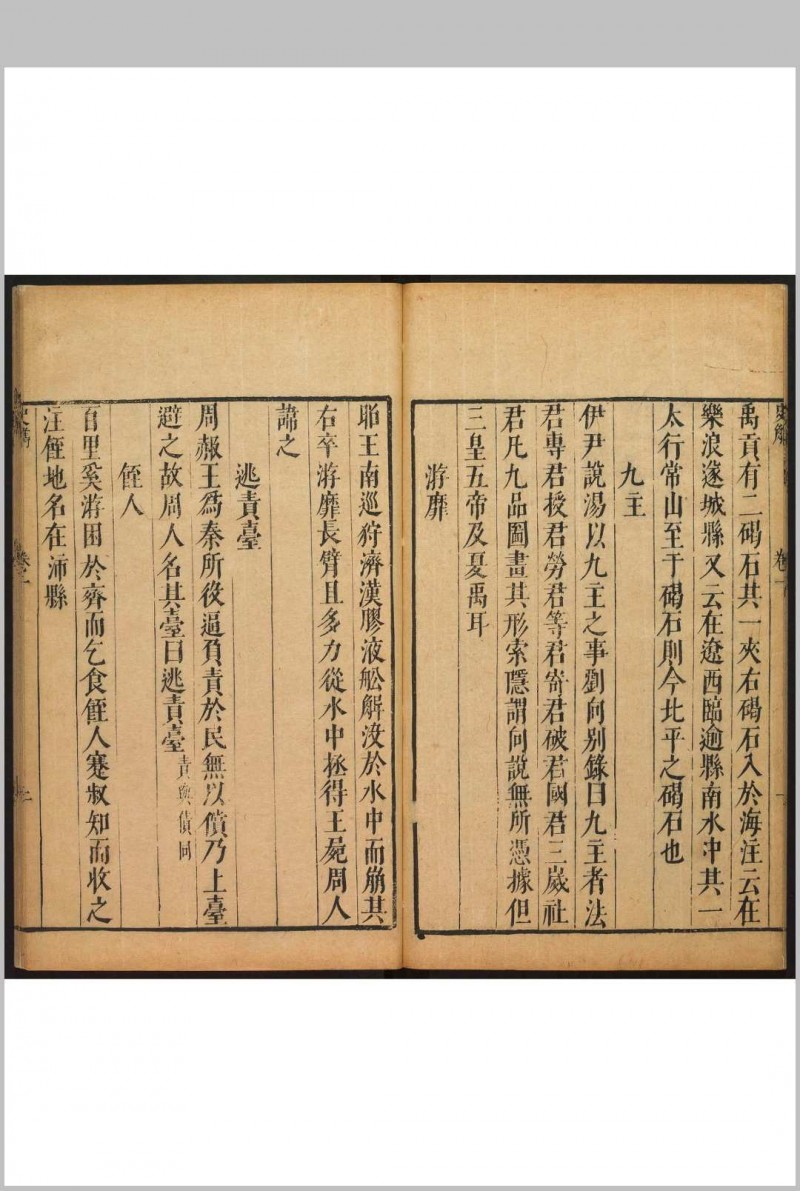 禹貢有二碣石其一夾右碣石入於海注云在
樂浪遂城縣又云在遼西臨逾縣南水中其一
太行常山至于碣石則今北平之碣石也
九主
伊尹說湯以九主之事劉向別錄曰九主者法
君專君授君勞君等君寄君破君國君三歲社
君凡九品圖畫其形索隱謂向說無所憑據但
三皇五帝及夏禹耳
游靡
耶王南巡狩濟漢膠液舩解沒於水中而崩其
右卒游靡長臂且多力從水中拯得王屍周人
諱之
逃責臺
周赧王為秦所役逼負責於民無以償乃上臺
避之故周人名其臺曰逃責臺責與債同
銍人
百里奚游困於齊而乞食銍人蹇叔知而收之
注銍地名在沛縣
卷一
卷一